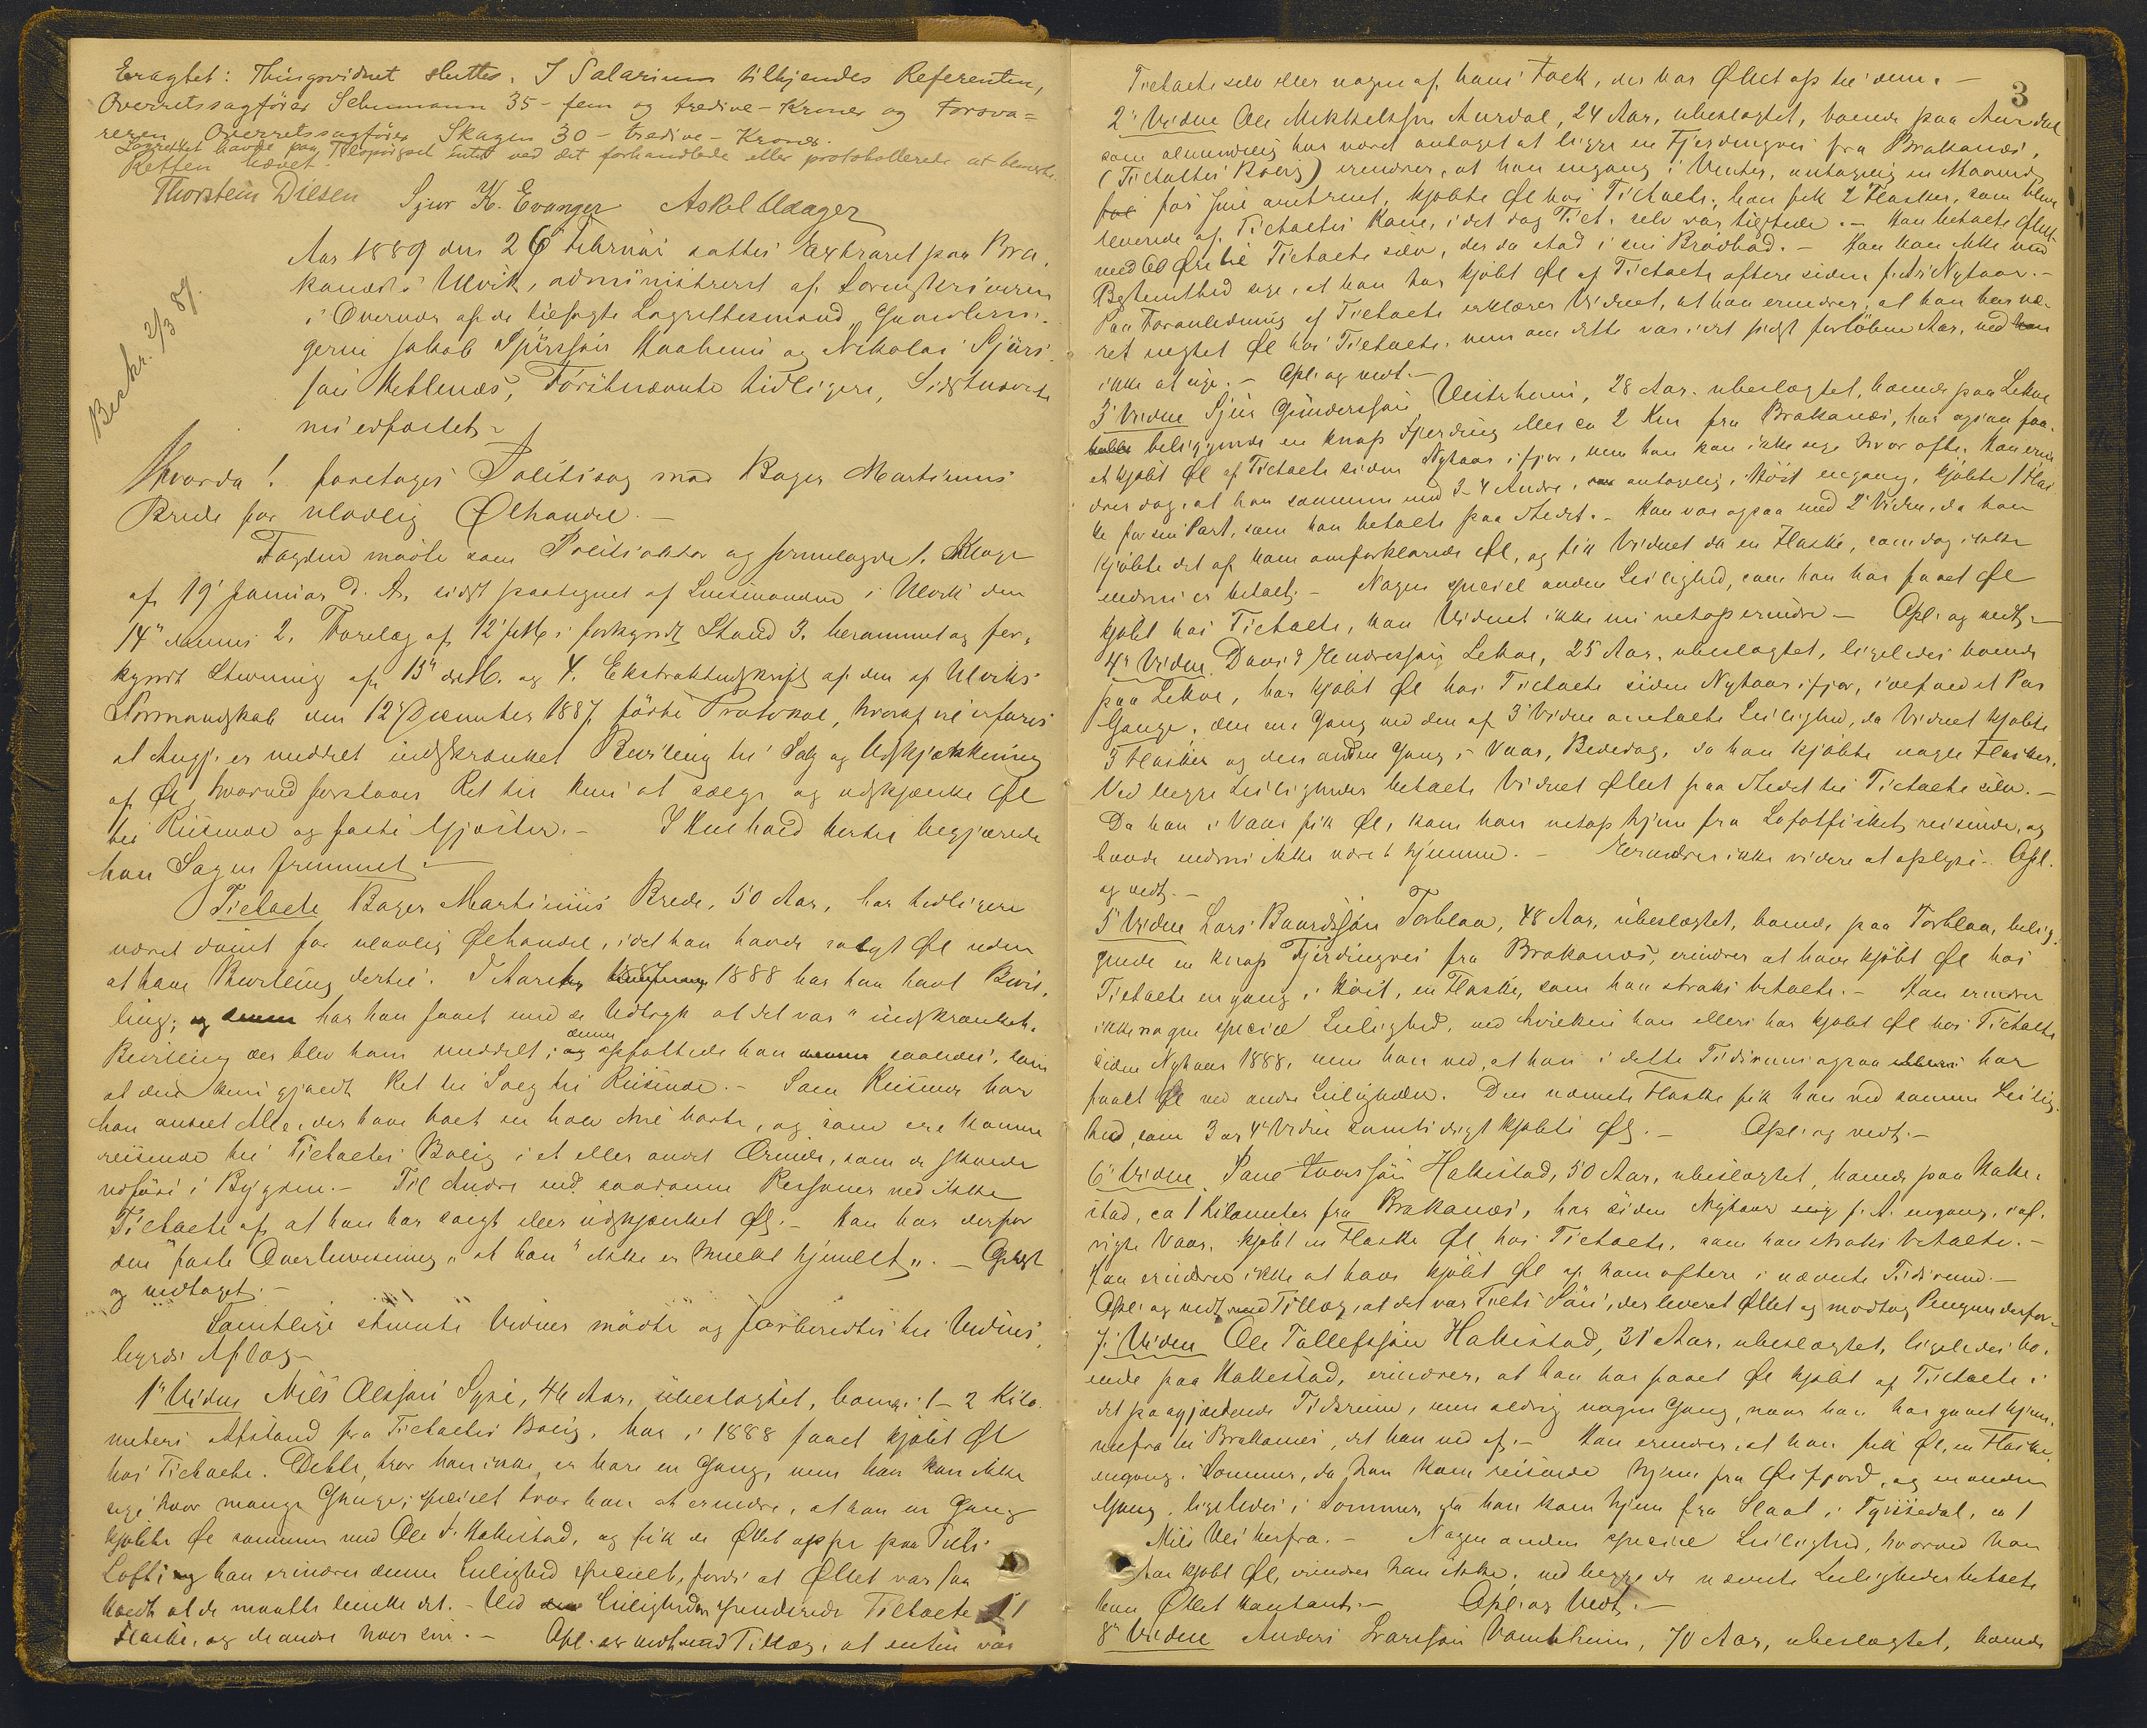 Eragtet: Thingsvidnet sluttes. I Salarium tilkjendes Referenten,
Overretssagfører Schumann 35 - fem og tredive - Kroner og Forsva=
reren, Overretssagfører Skagen 30 - tredive - Kroner.
Lagrettet havde paa Tilspørgsel intet ved det forhandlede eller protokollerede at bemærke.
Retten hævet.
Thorstein Diesen Sjur K. Evanger Askel Aaager
Aar 1889 den 26 Februar sattes Extraret paa Bra-
kanæs i Ulvik, administreret af Sorenskriveren
i Overvær af de tilsagte Lagrettesmænd
Jakob Sjursson og Nikolai Sjurs-
søn Førstnævnte tidligere, Sidstnævnte
nu edfæstet.
Beskr. 2/3 89.
Hvorda!. foretages Politisag mod Bager Martinus
Brede for ulovlig Ølhandel. -
Fogden mødte som Politiaktor og fremlagde 1. Klage
af 19 Januar d. A. sidst paategnet af Lensmanden i Ulvik den
14 dennes 2. Forelæg af 12 i forkyndt Stand 3. berammet og for-
kyndt Stevning af 15 ds M. og 4. Ekstraktudskrift af den af Ulviks
Formandskab den 12 December 1887 førte Protokol, hvoraf vil erfares
at Angj. er meddelt indskrænket Bevilling til Salg og Udskjænkning
af Øl, hvorved forstaaes Ret til kun at sælge og udskjænke Øl
til Reisende og faste Gjæster. - I Henhold hertil begjærede
han Sagen fremmet. -
Tiltalte Bager Martinus Brede, 50 Aar, har tidligere
været dømt for ulovlig Ølhandel, idet han havde solgt Øl uden
at have Bevilling dertil. I Aaret 1888 har han havt Bevil-
ling; har han faaet med de Udtryk at det var "indskrænket"
Bevilling der blev ham meddelt; denne opfattede han saaledes, som
at den kun gjaldt Ret til Salg til Reisende. - Som Reisende har
han anseet Alle, der have boet en halv Mil borte, og som ere komne
reisende til Tiltaltes Bolig i et eller andet Ærinde, som de skulde
udføre i Bygden. - Til Andre end saadanne Personer ved ikke
Tiltalte af, at han har solgt eller udskjænket Øl. - Han har derfor
den "faste Overbevisning", at han ikke er Mulkt hjemlet". - Oplæst
og vedtaget. -
Samtlige stevnte Vidner mødte og forberedtes til Vidnes-
byrds Aflæg -
1' Vidne Nils Olsson Syse, 46 Aar, ubeslægtet, boende 1 - 2 Kilo-
meters Afstand fra Tiltaltes Bolig, har i 1888 faaet kjøbt Øl
hos Tiltalte. Dette, tror han ikke, er bare en Gang, men han kan ikke
sige hvor mange Gange; specielt tror han at erindre, at han en Gang
kjøbte Øl sammen med Ole T. Hakestad, og fik de Øllet oppe paa Tilts
Loft; og han erindrer denne Leilighed specielt, fordi at Øllet var saa
koldt at de maatte lunke det. - Ved Leiligheden spenderede Tiltalte 1
Flaske, og de andre hver sin. - Opl. og vedt. med Tillæg, at enten var
3
Tiltalte selv eller nogen af hans Folk, der bar Øllet op til dem. -
2' Vidne Ole Mikkelsson Aurdal, 24 Aar, ubeslægtet, boende paa Aurdal
som almindelig har været antaget at ligge en Fjerdingvei fra Brakanæs,
(Tiltaltes Bolig) erindrer, at han engang i Vinter, antagelig en Maaned
før Jul omtrent, kjøbte Øl hos Tiltalte; han fik 2 Flasker, som blev
leverede af Tiltaltes Kone, idet dog Tilt. selv var tilstede. - Han betalte Øllet
med 60 Øre til Tiltalte selv, der da stod i sin Brødbod. - Han kan ikke med
Bestemthed sige, at han har kjøbt Øl af Tiltalte oftere siden f. A's Nytaar. -
Paa Foranledning af Tiltalte erklærer Vidnet, at han erindrer, at han har væ-
ret negtet Øl hos Tiltalte, men om dette var i det sidst forløbne Aar, ved han
ikke at sige. - Opl. og vedt. -
3' Vidne Sjur Gundersson Vestrheim, 28 Aar, ubeslægtet, boende paa Lekve
beliggende en knap Fjerding eller ca 2 Km fra Brakanæs, har ogsaa faa-
et kjøbt Øl af Tiltalte siden Nytaar ifjor, men han kan ikke sige hvor ofte. Han erin-
drer dog, at han sammen med 3-4 Andre, antagelig i Høst engang, kjøbte 1 Flas-
ke for sin Part, som han betalte paa Stedet. - Han var ogsaa med 2' Vidne, da han
kjøbte det af ham omforklarede Øl, og fik Vidnet da en Flaske, som dog ikke
endnu er betalt. - Nogen speciel anden Leilighed, som han har faaet Øl
kjøbt hos Tiltalte, kan Vidnet ikke nu netop erindre - Opl. og vedt. -
4' Vidne David Hendrekssøn Lekve, 25 Aar, ubeslægtet, ligeledes boende
paa Lekve, har kjøbt Øl hos Tiltalte siden Nytaar ifjor, i alfald et Par
Gange, den ene Gang ved den af 3' Vidne omtalte Leilighed, da Vidnet kjøbte
3 Flasker og den anden Gang i Vaar, Bededag, da han kjøbte nogle Flasker.
Ved begge Leiligheder betalte Vidnet Øllet paa Stedet til Tiltalte selv. -
Da han i Vaar fik Øl, kom han netop hjem fra Lofotfisket reisende, og
havde endnu ikke været hjemme. - Erindrer ikke videre at oplyse. Opl.
og vedt. -
5' Vidne Lars Baardsson Torblaa, 48 Aar, ubeslægtet, boende paa Torblaa, belig-
gende en knap Fjerdingvei fra Brakanæs, erindrer at have kjøbt Øl hos
Tiltalte engang i Høst, en Flaske, som han straks betalte. - Han erindrer
ikke nogen speciel Leilighed, ved hvilken han ellers har kjøbt Øl hos Tiltalte
siden Nytaar 1888, men han ved, at han i dette Tidsrum ogsaa har
faaet Øl ved andre Leiligheder. Den nævnte Flaske fik han ved samme Leilig-
hed, som 3 og 4' Vidne samtidigt kjøbte Øl. - Opl. og vedt. -
6' Vidne Hakestad, 50 Aar, ubeslægtet, boende paa Hake-
stad, ca 1 Kilometer fra Brakanæs, har siden Nytaar f. A. engang, i af-
vigte Vaar, kjøbt en Flaske Øl hos Tiltalte, som han straks betalte. -
Han erindrer ikke at have kjøbt Øl af ham oftere i nævnte Tidsrum. -
Opl. og vedt. med Tillæg, at det var Tilts Søn, der leveret Øllet og modtog Pengene derfor. -
7' Vidne Ole Tollefssøn Hakestad, 31 Aar, ubeslægtet, ligeledes bo-
ende paa Hakestad, erindrer, at han har faaet Øl kjøbt af Tiltalte i
det paagjældende Tidsrum, men aldrig nogen Gang, naar han har gaaet hjem-
mefra til Brakanæs, det han ved af. - Han erindrer, at han fik Øl, en Flaske,
engang i Sommer, da han kom reisende hjem fra Osefjord, og en anden
Gang, ligeledes i Sommer, da han kom hjem fra Slaat i Tyssedal, ca 1
Mils Vei herfra. - Nogen anden speciel Leilighed, hvorved han
har kjøbt Øl, erindrer han ikke; ved begge de nævnte Leiligheder betalte
han Øllet kontant. - Opl. og Vedt. -
8' Vidne Anders Larsson Vambheim, 70 Aar, ubeslægtet, boende